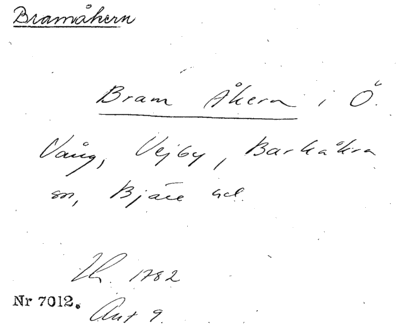 Bramåkern
Bram Åkern i Ö.
Vång, Vejby, Barkåkra
sn, Bjäre hd.
1782
Nr 7012.
Akt 9.